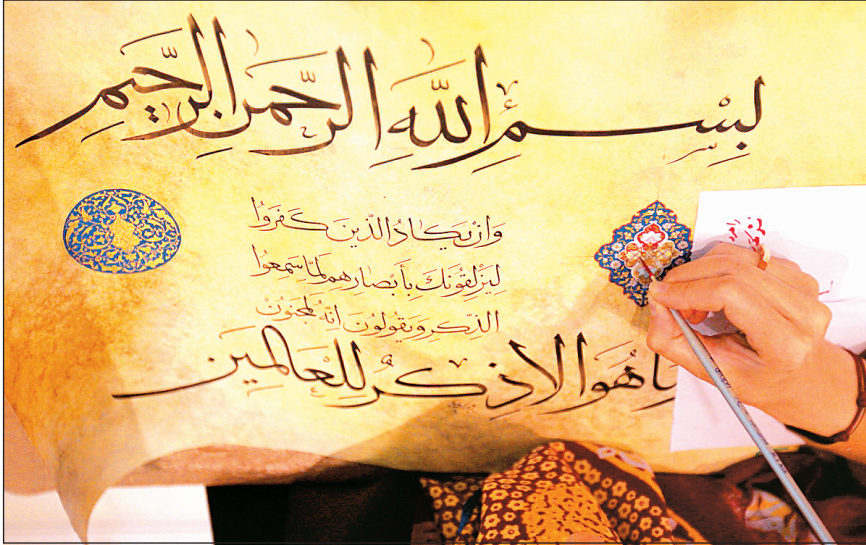 بِسْمِ اللَّهِ الرَّحْمَنِ الرَّحِيمِ
وَاِنْ يَكَادُ الَّذينَ كَفَرُوا
لَيُزْلِقُونَكَ بِأَبْصارِهِمْ لَمّا سَمِعُوا
الذِّكْرَ وَيَقُولُونَ اِنَّهُ لَمَجْنُونٌ
هُوَ اِلّا ذِكْرٌ لِلْعَالَمِينَ